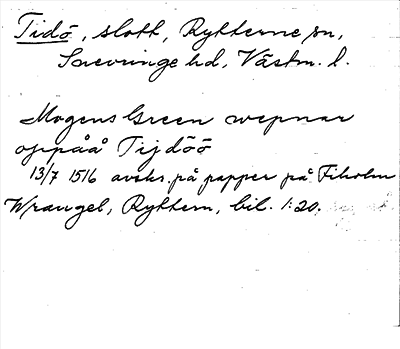 Tidö, slott, Rytterne sn,
Snevringe hd, Västm. l.
Mogens Green wepnar
oppåå Tijdöö
13/7 1516 avskr. på papper på Fiholm
Wrangel, Ryttern, bil. 1:20.